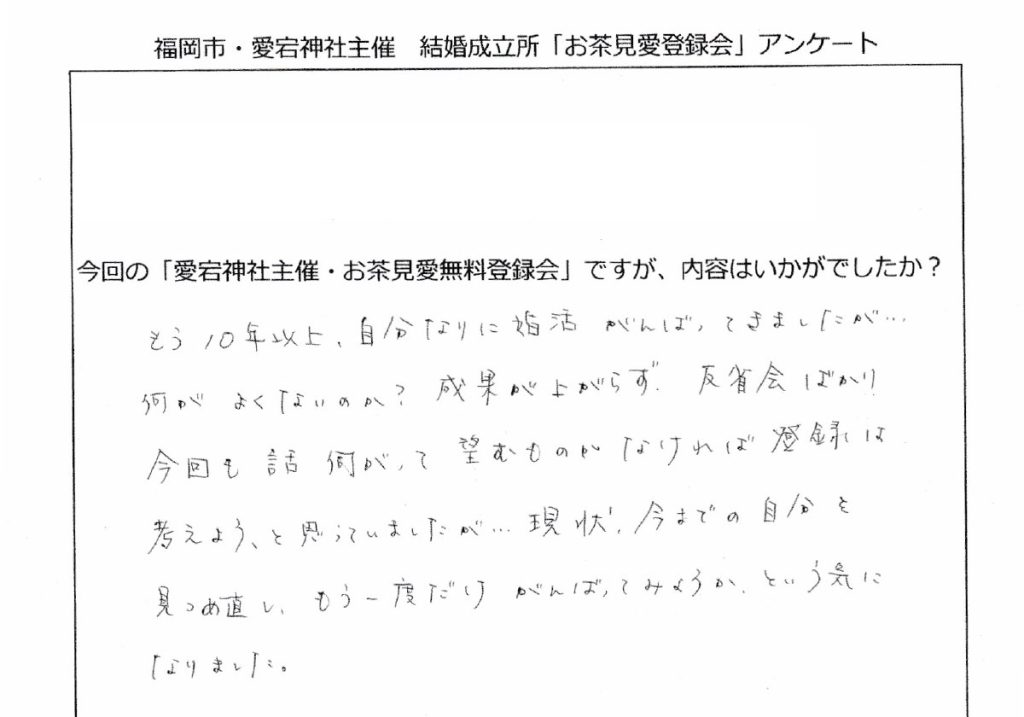 福岡市・愛宕神社主催　結婚成立所「お茶見愛登録会」アンケート
今回の「愛宕神社主催・お茶見愛無料登録会」ですが、内容はいかがでしたか？
もう10年以上、自分なりに婚活 がんばってきましたが…
何が よくないのか? 成果が上がらず、反省会ばかり
今回も 話 何がって 望むものがなければ 登録は
考えよう、と思っていましたが… 現状、今までの自分を
見つめ直し、もう一度だけ がんばってみようか、という気に
なりました。